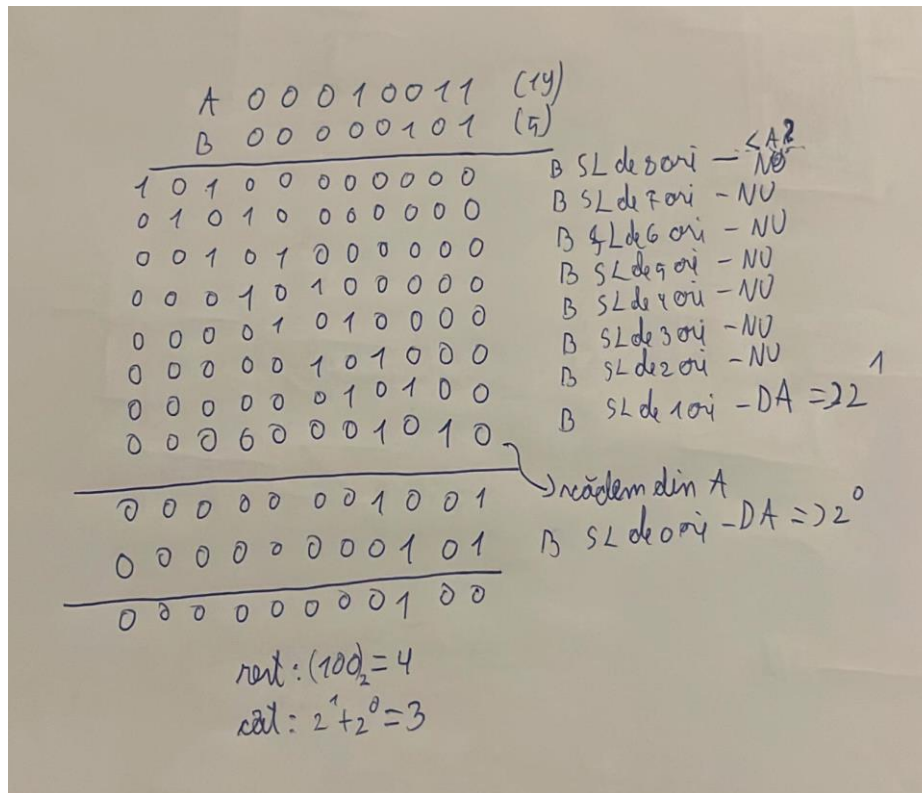 A 0 0 0 1 0 0 1 1 (19)
B 0 0 0 0 0 1 0 1 (5)
< A?
1 0 1 0 0 0 0 0 0 0 0 B SL de 8 ori - NU
0 1 0 1 0 0 0 0 0 0 0 B SL de 7 ori - NU
0 0 1 0 1 0 0 0 0 0 0 B SL de 6 ori - NU
0 0 0 1 0 1 0 0 0 0 0 B SL de 5 ori - NU
0 0 0 0 1 0 1 0 0 0 0 B SL de 4 ori - NU
0 0 0 0 0 1 0 1 0 0 0 B SL de 3 ori - NU
0 0 0 0 0 0 1 0 1 0 0 B SL de 2 ori - NU
0 0 0 0 0 0 0 1 0 1 0 B SL de 1 ori - DA => 2¹
scădem din A
0 0 0 0 0 0 0 1 0 0 1
0 0 0 0 0 0 0 0 1 0 1 B SL de 0 ori - DA => 2⁰
0 0 0 0 0 0 0 0 1 0 0
rest: (100)₂ = 4
cât: 2¹+2⁰ = 3